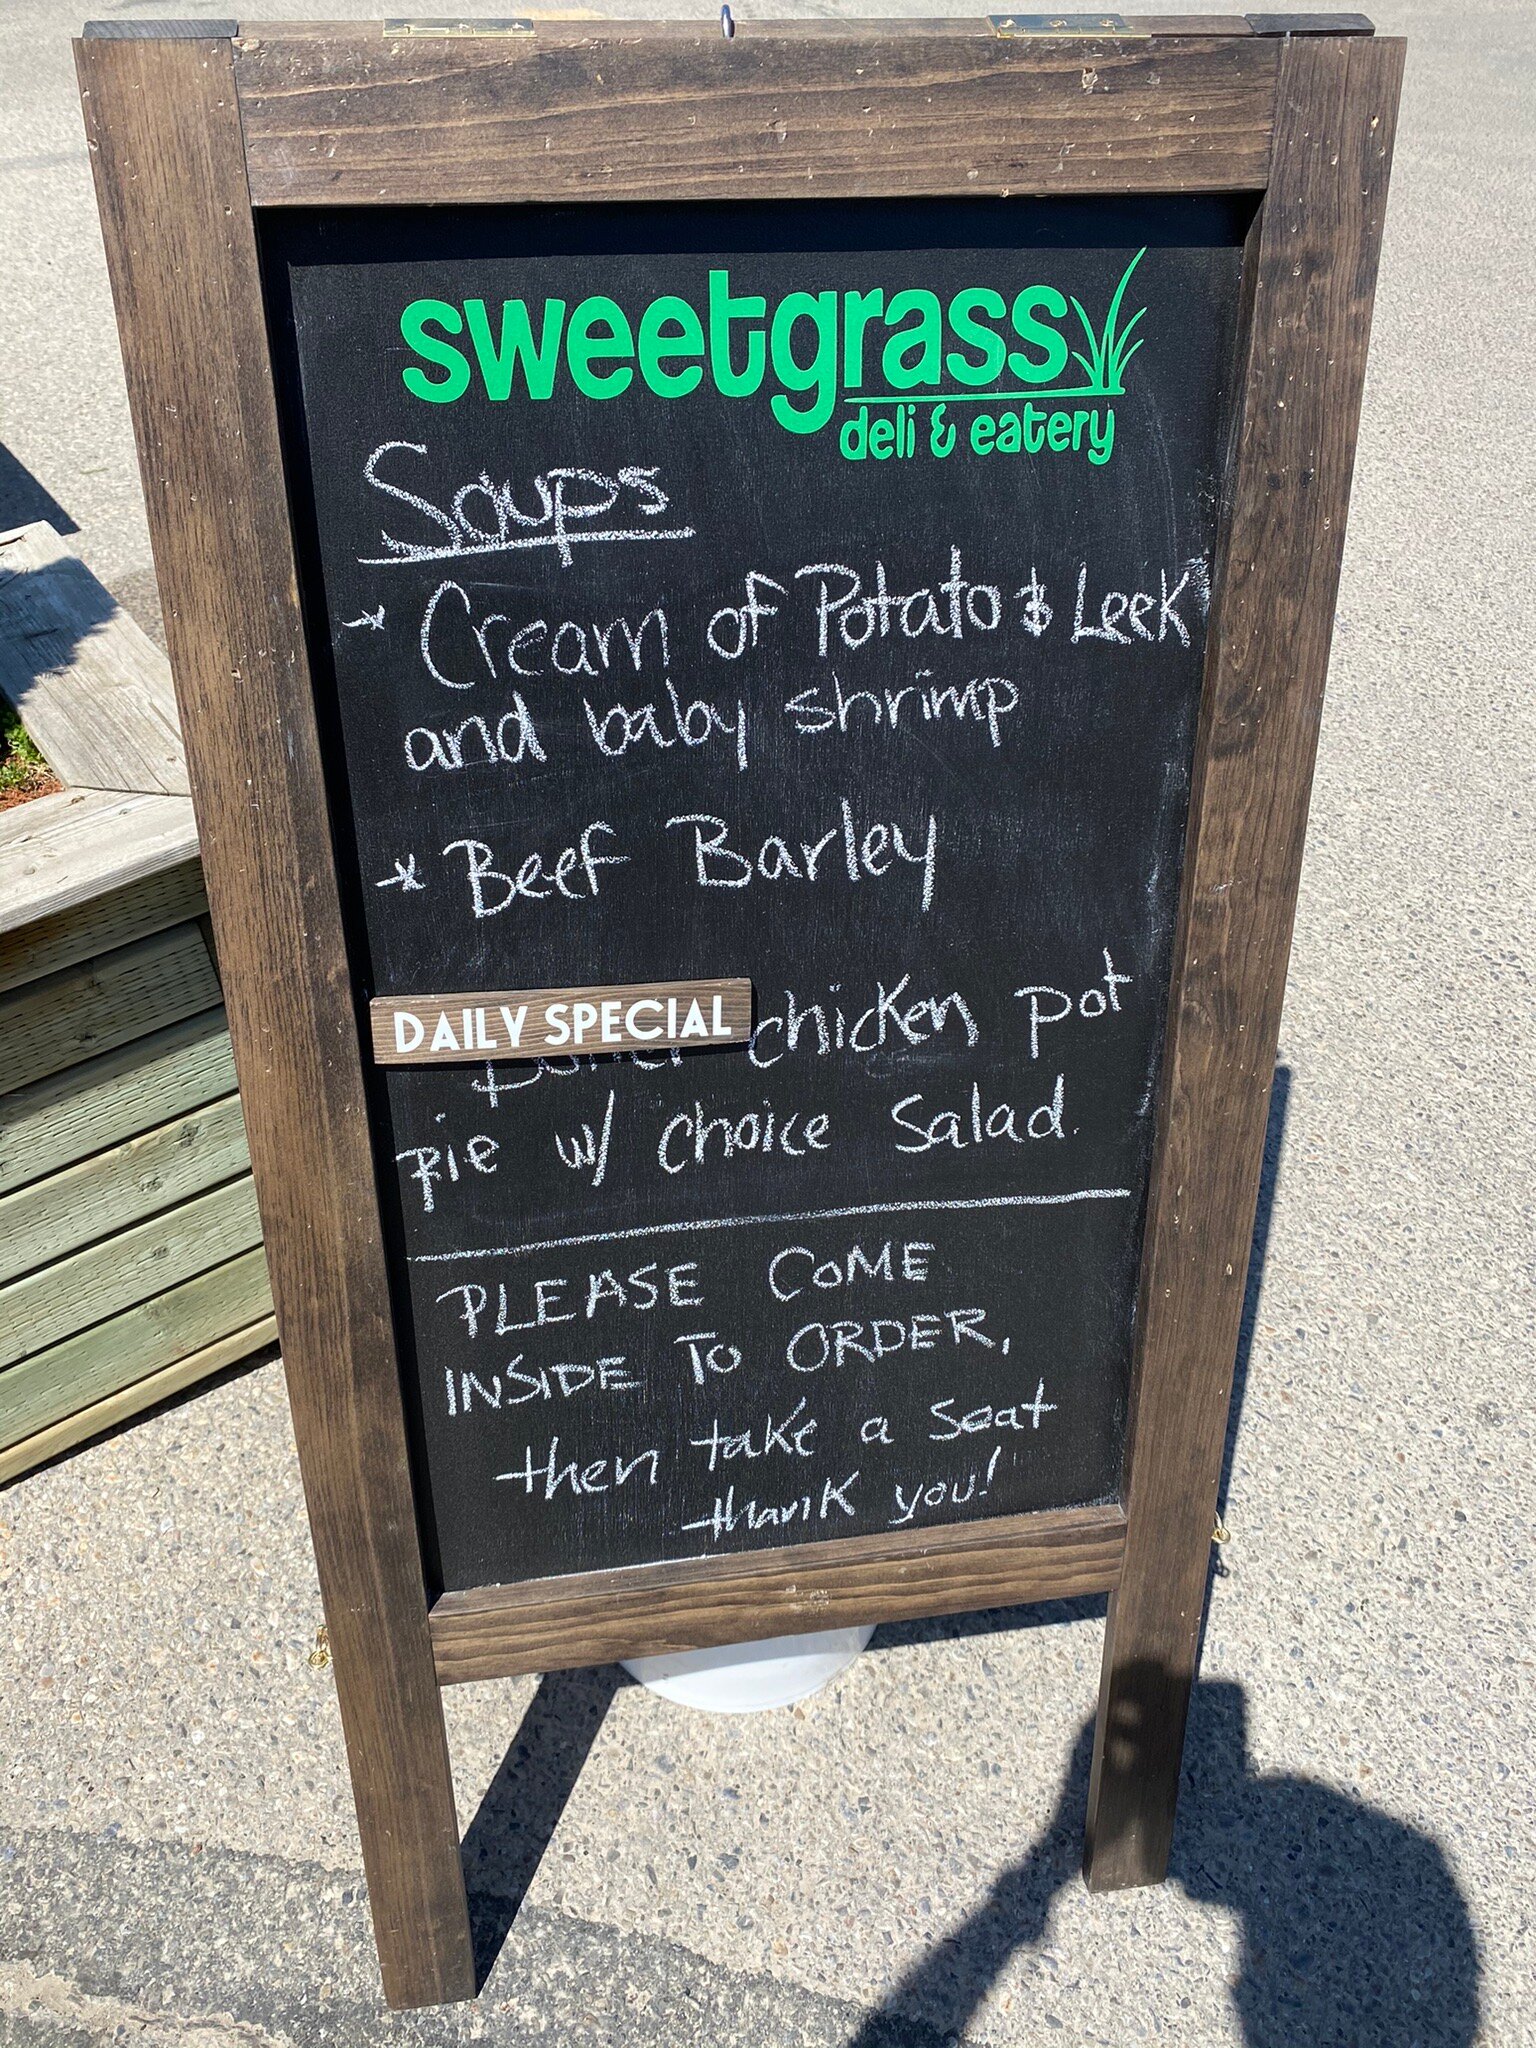 sweetgrass
deli & eatery
Soups
* Cream of Potato & Leek
and baby shrimp
* Beef Barley
DAILY SPECIAL chicken pot
pie w/ choice salad.
PLEASE COME
INSIDE TO ORDER,
then take a seat
thank you!